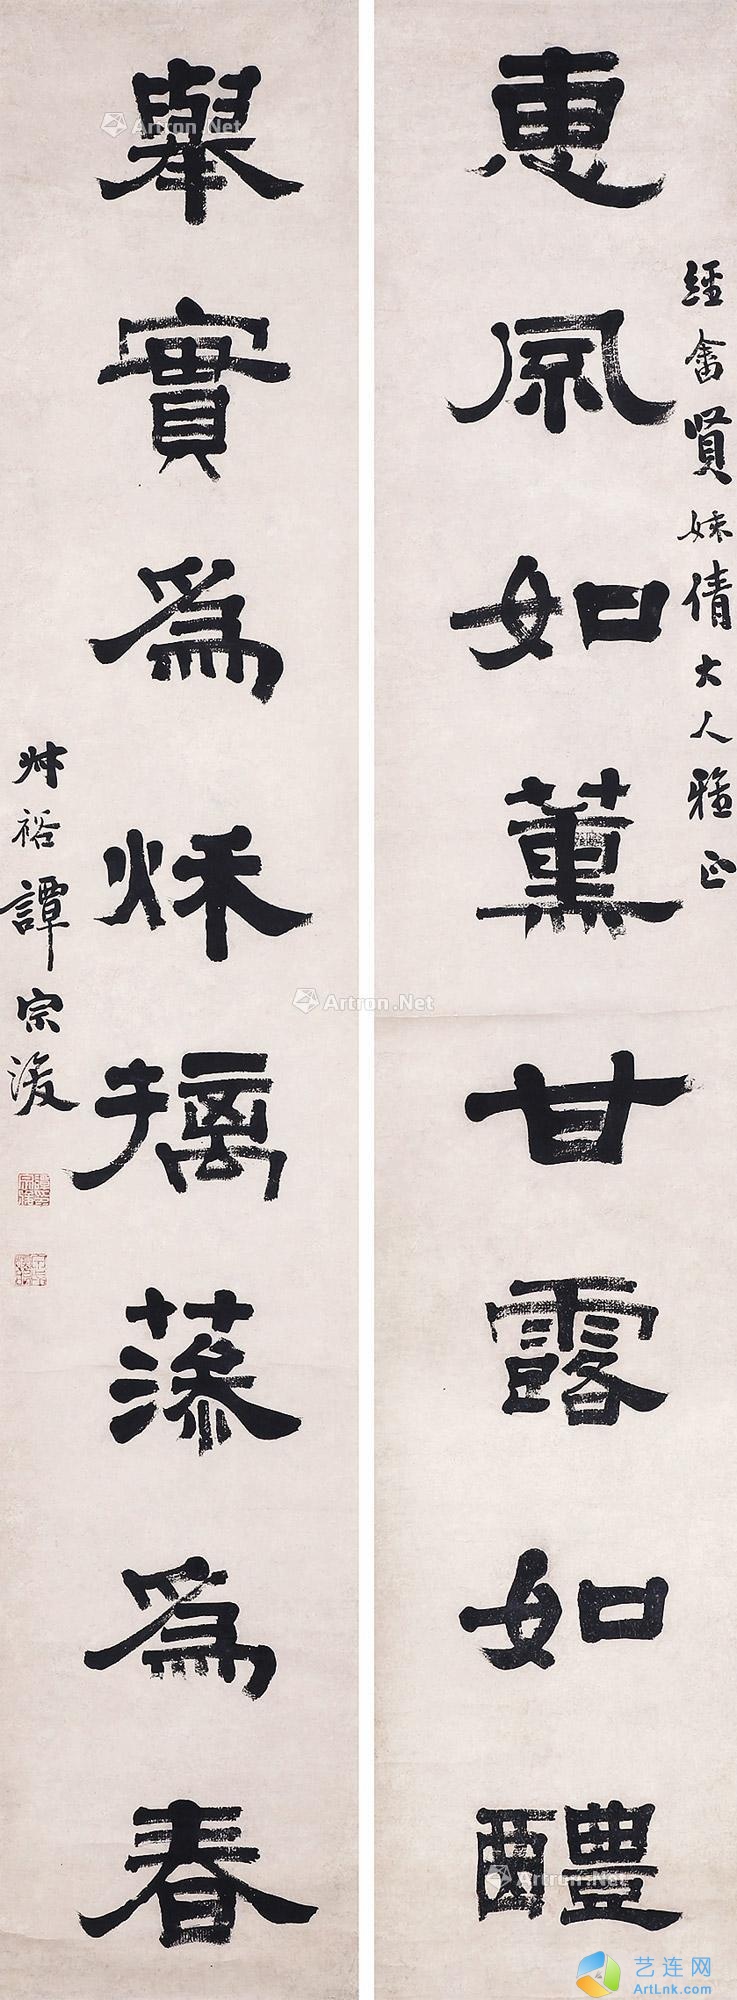 惠風如薰甘露如醴
經畬賢妹倩大人雅正
舉實為秌摛藻為春
叔裕譚宗浚
Artron.Net
Artron.Net
Artron.Net
Artron.Net
艺连网
ArtLnk.com